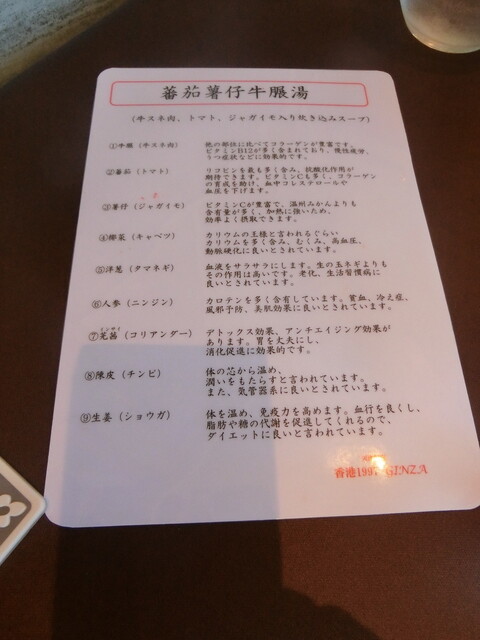 蕃茄薯仔牛𦟌湯
(牛スネ肉、トマト、ジャガイモ入り炊き込みスープ)
①牛𦟌（牛スネ肉） 他の部位に比べてコラーゲンが豊富です。
ビタミンB12が多く含まれており、慢性疲労、
うつ症状などに効果的です。
②蕃茄（トマト） リコピンを最も多く含み、抗酸化作用が
期待できます。ビタミンCも多く、コラーゲン
の育成を助け、血中コレステロールや
血圧を下げます。
③薯仔（ジャガイモ） ビタミンCが豊富で、温州みかんよりも
含有量が多く、加熱に強いため、
効率よく摂取できます。
④椰菜（キャベツ） カリウムの王様と言われるぐらい
カリウムを多く含み、むくみ、高血圧、
動脈硬化に良いとされています。
⑤洋葱（タマネギ） 血液をサラサラにします。生の玉ネギよりも
その作用は高いです。老化、生活習慣病に
良いとされています。
⑥人参（ニンジン） カロテンを多く含有しています。貧血、冷え症、
風邪予防、美肌効果に良いとされています。
⑦芫茜（コリアンダー） デトックス効果、アンチエイジング効果が
あります。胃を丈夫にし、
消化促進に効果的です。
⑧陳皮（チンピ） 体の芯から温め、
潤いをもたらすと言われています。
また、気管器系に良いとされています。
⑨生姜（ショウガ） 体を温め、免疫力を高めます。血行を良くし、
脂肪や糖の代謝を促進してくれるので、
ダイエットに良いと言われています。
香港1997 GINZA